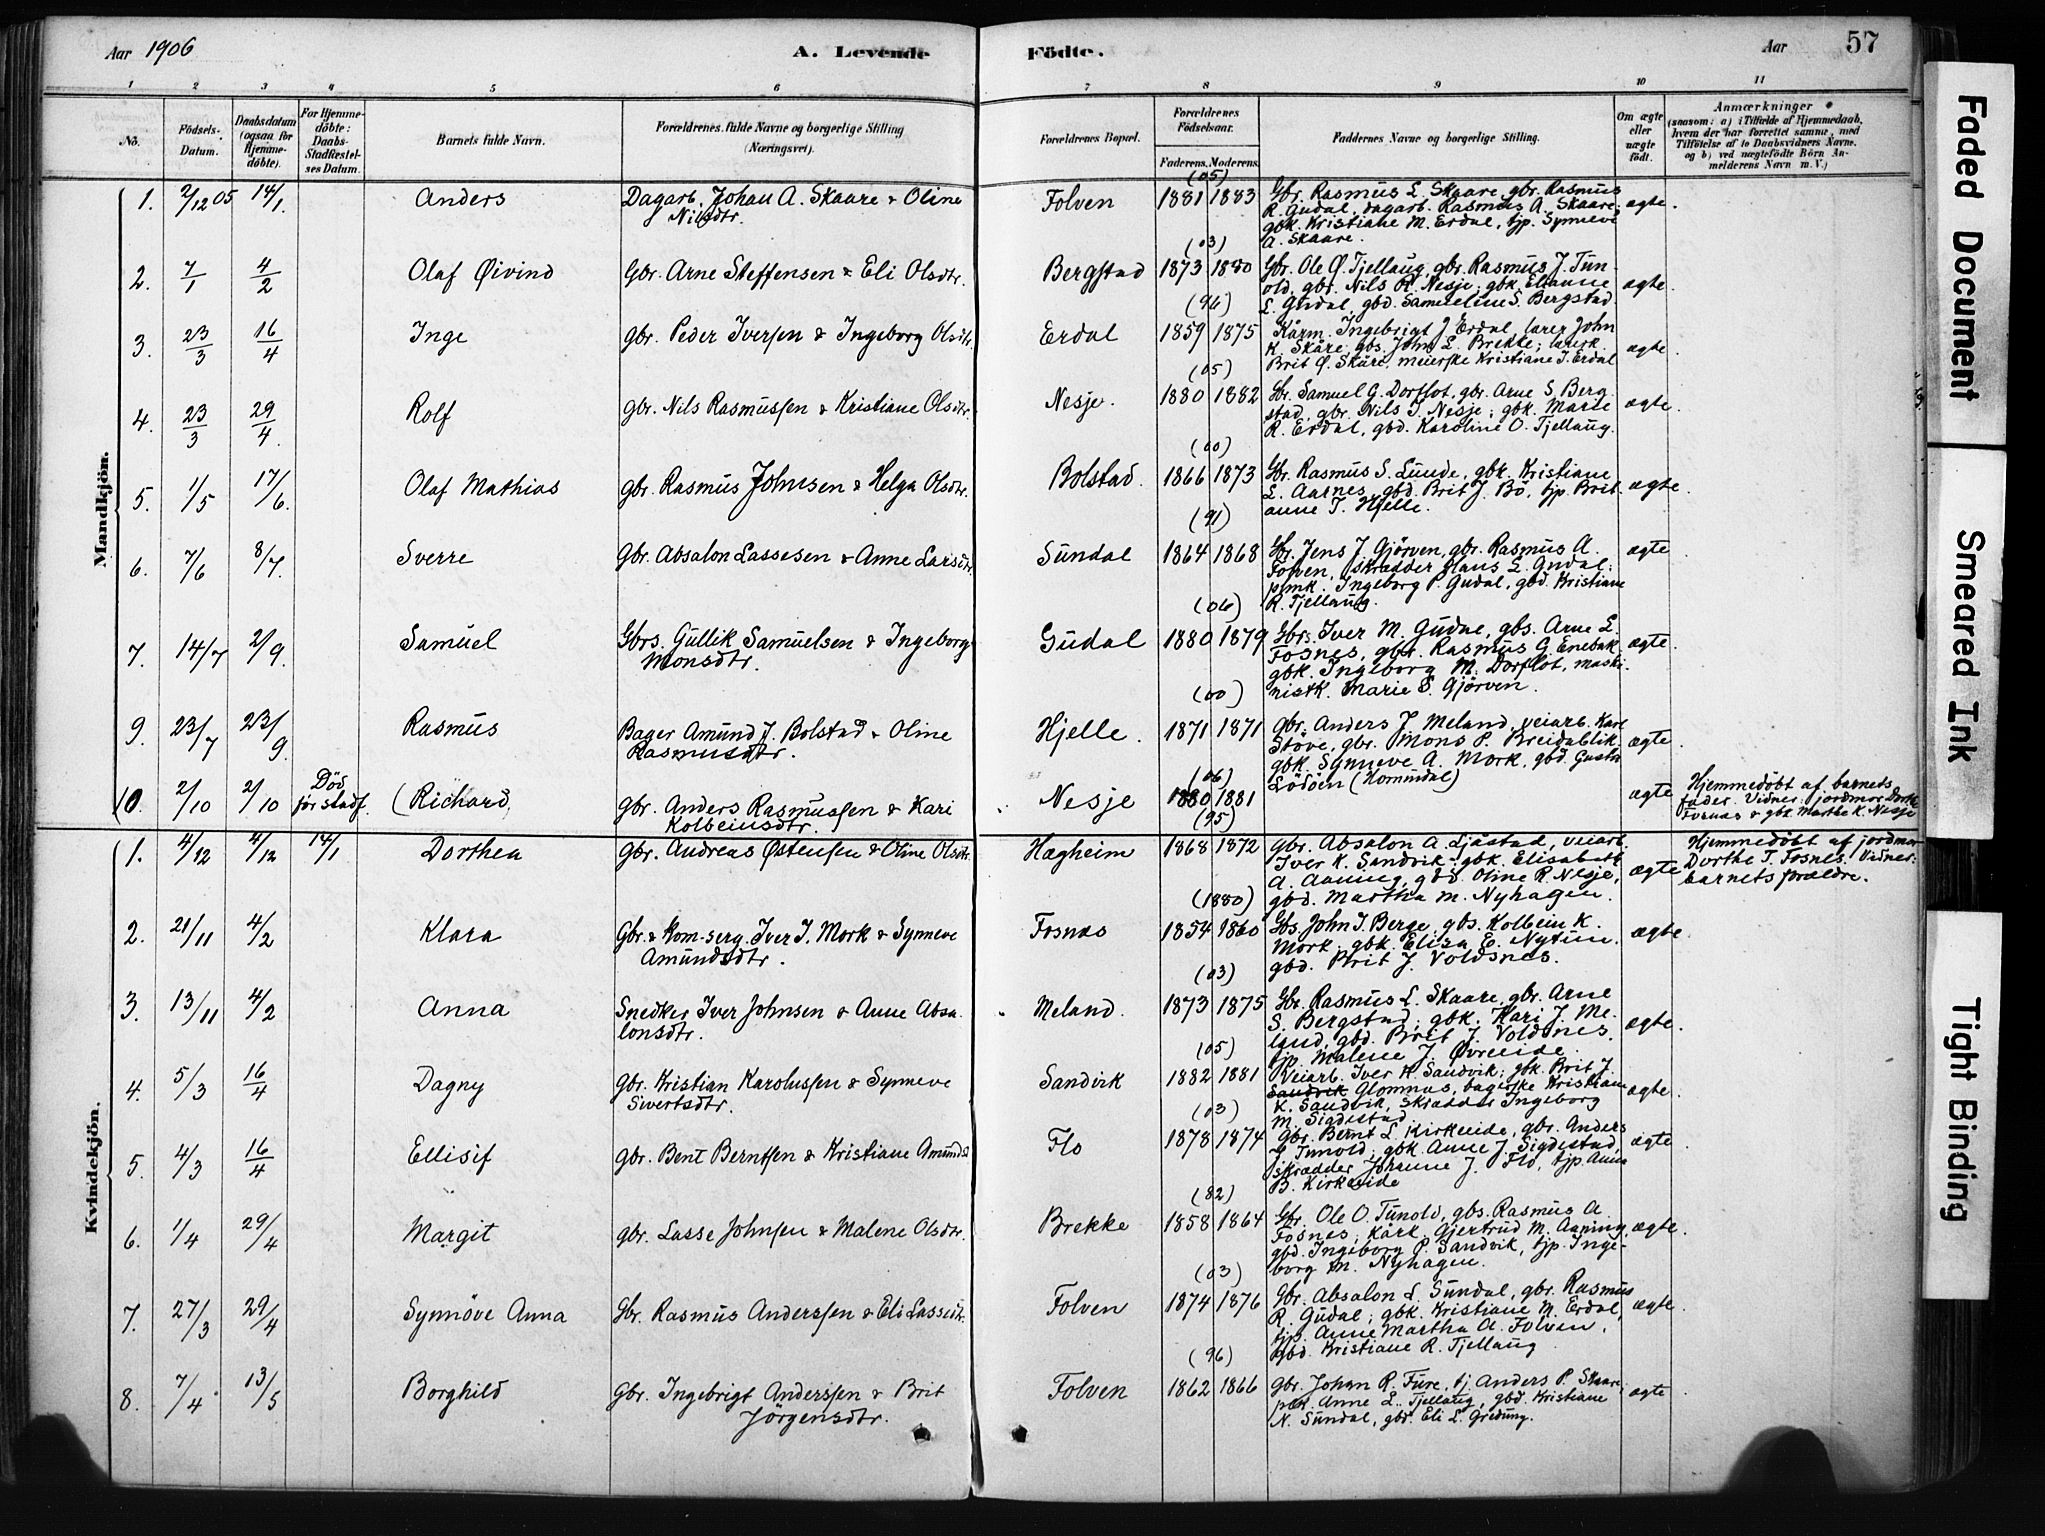 Aar 1906
A. Levende
Födte.
Aar
57
1 2 3 4 5 6 7 8 9 10 11
No.
Födsels-
Datum.
Daabsdatum
(ogsaa for
Hjemme-
döbte).
For Hjemme-
döbte:
Daabs-
Stadfæstel-
ses Datum.
Barnets fulde Navn.
Forældrenes fulde Navne og borgerlige Stilling
(Næringsvei).
Forældrenes Bopæl.
Forældrenes
Födselsaar.
Faderens. Moderens.
Faddernes Navne og borgerlige Stilling.
Om ægte
eller
uægte
födt.
Anmærkninger
(saasom: a) i Tilfælde af Hjemmedaab,
hvem der har forrettet samme, med
Tilföielse af to Daabsvidners Navne,
og b) ved uægtefödte Börn An-
melderens Navn m. V.)
Mandkjön.
1. 2/12 05 14/1. Anders
Dagarb. Johan A. Skaare & Oline
Nilsdtr.
Folven (05) 1881 1883
Gbr. Rasmus L. Skaare, gbr. Rasmus
R. Gudal, dagarb. Rasmus A. Skaare;
gbk. Kristiane M. Erdal, tjp. Synneve
A. Skaare.
ægte.
2. 7/1 4/2 Olaf Øivind
Gbr. Arne Steffensen & Eli Olsdtr.
Bergstad (03) 1873 1880
Gbr. Ole Ø. Tjellaug, gbr. Rasmus J. Tun-
old, gbr. Nils R. Nesje; gbk. Elianne
L. Gudal, gbd. Samueline S. Bergstad.
ægte.
3. 23/3 16/4 Inge
gbr. Peder Iversen & Ingeborg Olsdtr.
Erdal (96) 1859 1875
Kårm. Ingebrigt J. Erdal, lærer John
K. Skåre, gbs. John L. Brekke; lærerk.
Brit Ø. Skåre, meierske Kristiane I. Erdal
ægte.
4. 23/3 29/4. Rolf
gbr. Nils Rasmussen & Kristiane Olsdtr.
Nesje. (05) 1880 1882
Gbr. Samuel G. Dorflot, gbr. Arne S. Berg-
stad, gbr. Nils I. Nesje; gbk. Marie
R. Erdal, gbd. Karoline O. Tjellaug.
ægte.
5. 1/5 17/6. Olaf Mathias
gbr. Rasmus Johnsen & Helga Olsdtr.
Bolstad. (00) 1866 1873
Gbr. Rasmus S. Lunde, gbk. Kristiane
L. Aarnes, gbd. Brit J. Bö, tjp. Brit-
anne T. Hjelle.
ægte.
6. 7/6 8/7. Sverre
Gbr. Absalon Lassesen & Anne Larsdtr.
Sundal (91) 1864 1868
Gbr. Jens J. Gjörven, gbr. Rasmus A.
Folven, skrædder Hans L. Gudal;
Ingeborg P. Gudal, gbd. Kristiane
R. Tjellaug.
ægte.
7. 14/7 2/9. Samuel
Gbrs. Gullik Samuelsen & Ingeborg
Monsdtr.
Gudal (06) 1880 1879
Gbrs. Iver M. Gudal, gbs. Arne L.
Fosnes, gbr. Rasmus G. Enebak
gbk. Ingeborg M. Dorflot, maski-
nistk. Marie S. Gjörven.
ægte.
9. 23/7 23/9. Rasmus
Bager Amund J. Bolstad & Oline
Rasmusdtr.
Hjelle. (00) 1871 1871
gbr. Anders J. Meland, veiarb. Karl
Störe, gbr. Mons P. Breidablik
gbk. Synneve A. Mork, gbd. Gusta
Lödöen (Hornindal)
ægte.
10. 2/10 2/10 Död
för stadf. (Richard,
gbr. Anders Rasmussen & Kari
Kolbeinsdtr.
Nesje (06) 1880 1881
ægte
Hjemmedöbt af barnets
fader. Vidner: jordmor Dorthe
Fosnes & gbk. Marthe K. Nesje
Kvindekjön.
1. 4/12 4/12 14/1 Dorthea
gbr. Andreas Østensen & Oline Olsdtr.
Hægheim (95) 1868 1872
gbr. Absalon A. Ljåstad, veiarb.
Iver K. Sandvik; gbk. Elisabeth
A. Aaning, gbd. Oline R. Nesje,
gbd. Martha M. Nyhagen.
ægte
Hjemmedöbt af jordmor
Dorthe T. Fosnes. Vidner:
barnets forældre.
2. 21/11 4/2 Klara
Gbr. & kom-serg. Iver I. Mork & Synneve
Amundsdtr.
Fosnæs (1880) 1854 1860
Gbs. John I. Berge, gbs. Kolbein K.
Mork; gbk. Elisa E. Nytun.
gbd. Brit J. Voldsnes.
ægte.
3. 13/11 4/2 Anna
Snedker Iver Johnsen & Anne Absa-
lonsdtr.
Meland. (03) 1873 1875
Gbr. Rasmus L. Skaare, gbr. Arne
S. Bergstad; gbk. Kari J. Me-
land, gbd. Brit J. Voldsnes,
tjp. Malene J. Øvreeide.
ægte.
4. 5/3 16/4 Dagny
gbr. Kristian Karolussen & Synneve
Sivertsdtr.
Sandvik (05) 1882 1881
Veiarb. Iver K. Sandvik; gbk. Brit J.
Sandvik Glomnæs, bagerske Kristiane
K. Sandvik, skrædder Ingeborg
M. Sigdestad.
ægte.
5. 4/3 16/4 Ellisif
gbr. Bent Berntsen & Kristiane Amundsd
Flo (03) 1878 1874
Gbr. Bernt L. Kirkeeide, gbr. Anders
J. Tunold; gbk. Anne J. Sigdestad,
skrædder Johanne J. Flo, tjp. Anna
B. Kirkeeide
ægte.
6. 1/4 29/4 Margit
gbr. Lasse Johnsen & Malene Olsdtr.
Brekke (82) 1858 1864
Gbr. Ole O. Tunold, gbs. Rasmus A.
Fosnes; kårk. Gjertrud M. Aaning,
gbd. Ingeborg P. Sandvik, tjp. Inge-
borg M. Nyhagen.
ægte.
7. 27/3 29/4 Synnöve Anna
Gbr. Rasmus Anderssen & Eli Lassedtr.
Folven (03) 1874 1876
Gbr. Absalon L. Sundal, gbr. Rasmus
R. Gudal; gbk. Kristiane M. Erdal,
tjp. Anne Martha A. Folven,
gbd. Kristiane R. Tjellaug
ægte.
8. 7/4 13/5 Borghild
Gbr. Ingebrigt Anderssen & Brit
Jörgensdtr.
Folven (96) 1862 1866
Gbr. Johan R. Fure, tj. Anders P. Skaare;
Anne L. Tjellaug, gbd. Kristiane
N. Sundal, gbd. Eli L. Gredung.
ægte
Faded Document
Smeared Ink
Tight Binding